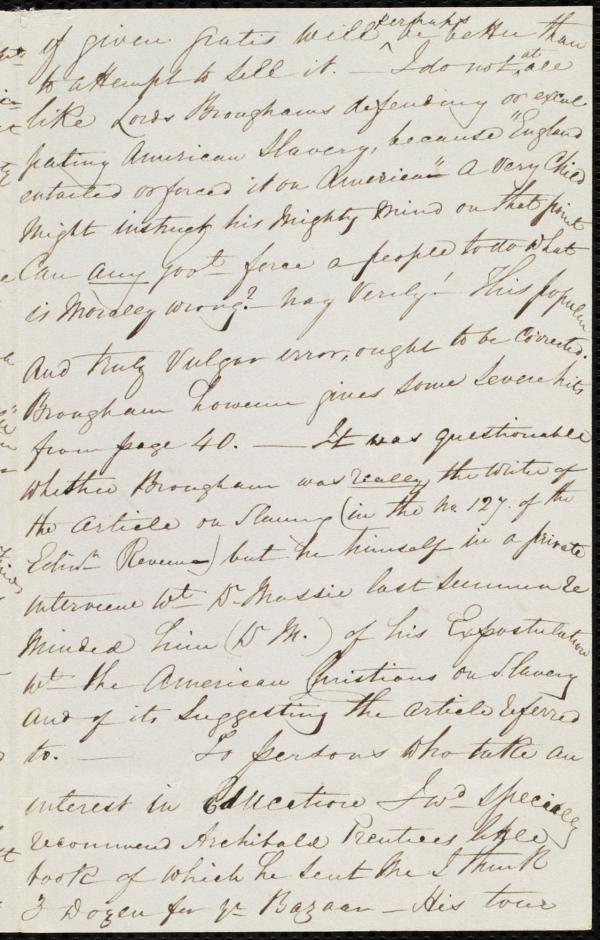 of given gratis will perhaps be better than
to attempt to sell it. — I do not at all
like Lords Broughams defending or excul
pating American Slavery, because "England
entailed or forced it on America" — A very Child
Might instruct his Mighty Mind on that point
Can any govt force a people to do what
is Morally wrong? Nay Verily! This popular
And truly Vulgar error, ought to be Corrected.
Brougham however gives some severe hits
from page 40. — It was questionable
whether Brougham was really the writer of
the article on Slavery (in the No 127. of the
Edinr Review) but he himself in a private
interview wt Dr Massie last Summer re
minded him (Dr M.) of his Expostulation
wt the American Christians on Slavery
And of its Suggesting the article referred
to. — To persons who take an
interest in Education I wd specially
recommend Archibald Prentices little
book of which he sent me I think
3 Dozen for yr Bazaar — His tour